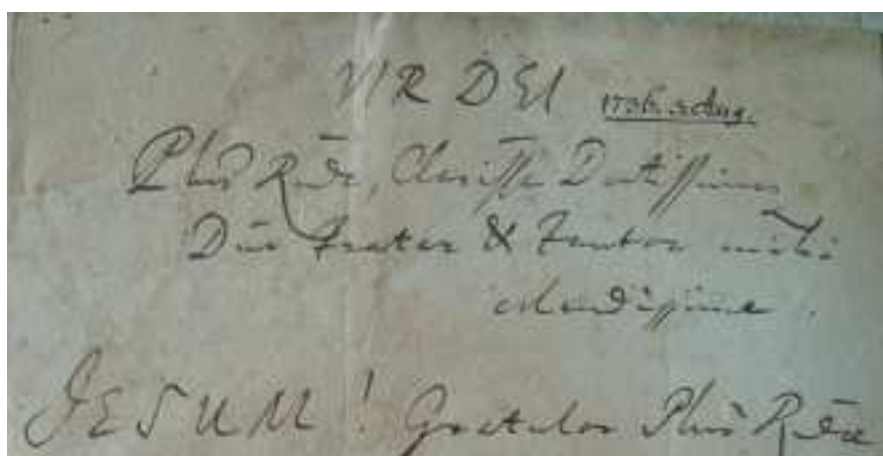 VIR DEI
Plur. Rnde, Clarisse Doctissime
Dne Frater & Fautor mihi
colendissime.
JESUM! Gratulor Plur. Rndae